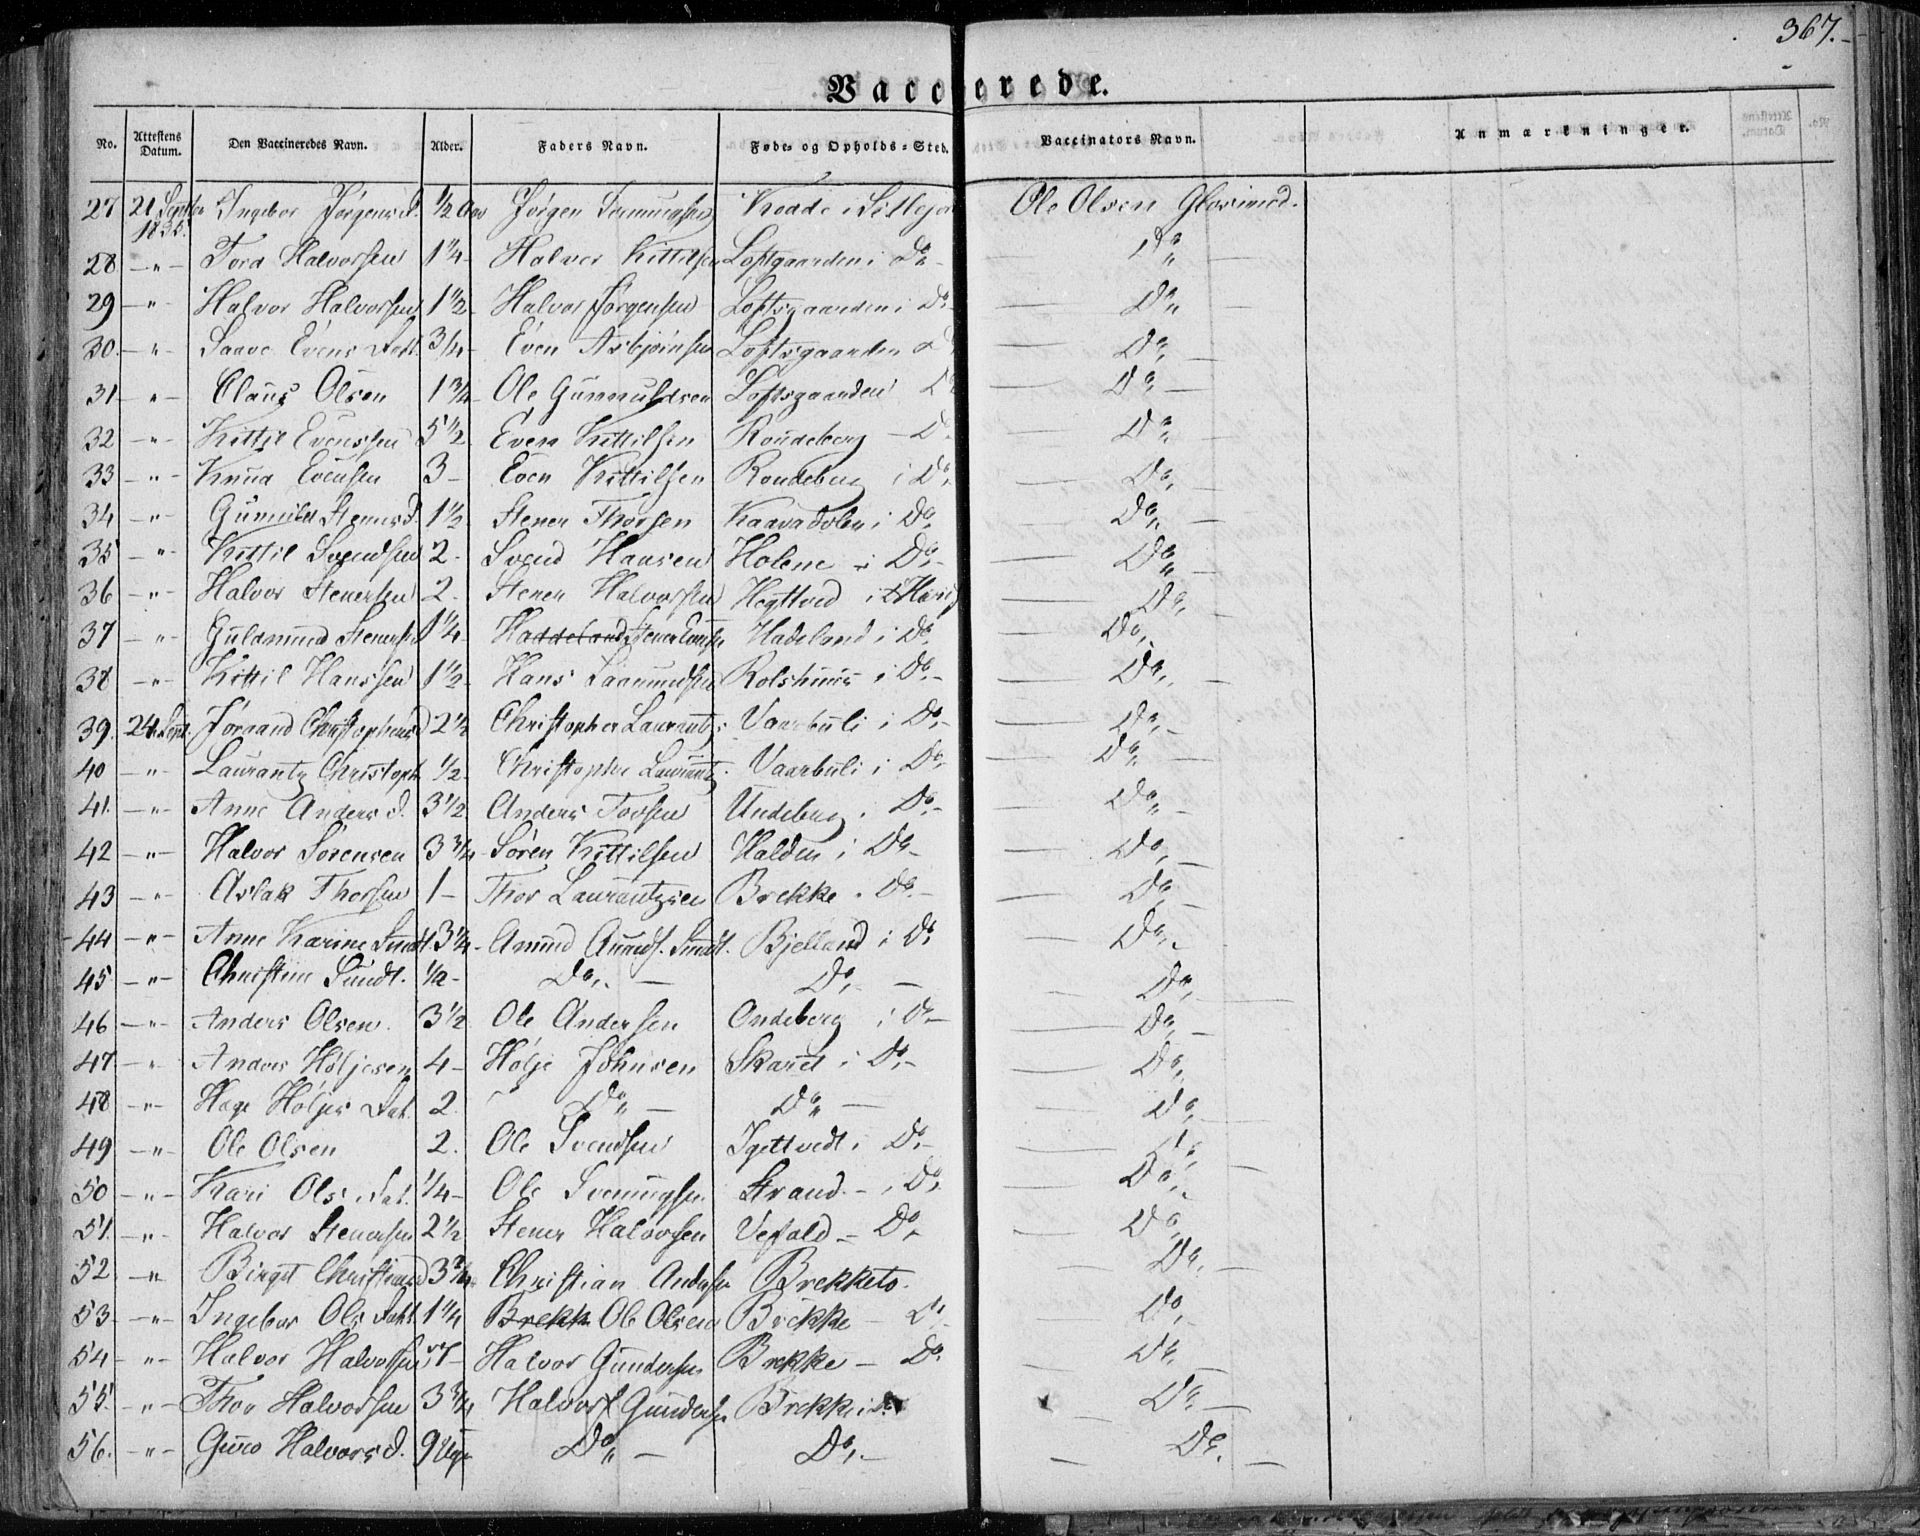 367.
Vaccinerede.
No. Attestens Datum. Den Vaccineredes Navn. Alder. Faders Navn. Føde- og Opholds-Sted. Vaccinators Navn. Anmærkninger.
27 21 Septbr 1835. Ingebor Jørgensd. 1/2 Aar Jørgen i Ole Olsen Glosimod.
28 -"- Tora Halvorsen 1 1/4 Halvor Kittilsen Loftsgaarden i Do Do
29 " Halvor Halvorsen 1 1/2 Halvor Jørgensen Loftsgaarden i Do Do
30. " Saave Evens Datt. 3/4 Even Asbjørnsen Loftsgaarden Do
31 -"- Claus Olsen 1 3/4 Ole Gunnuldsen Loftsgaarden Do Do
32 -"- Kittil Evenssen 5 1/2 Even Kittilsen Roudeberg - Do Do
33 -"- Knud Evensen 3 - Even Kittilsen Roudeberg i Do Do
34 -"- Gunnild Stenersd. 1 1/2 Stener Thorsen Kaavadolen i Do Do
35 -"- Kittil Svendsen 2. Svend Hansen Holene - i Do Do
36 -"- Halvor Stenersen 2. Stener Halvorsen i Do
37 -"- Guldmund Stenersen 1 1/4 Haddeland Stener Hadeland i Do Do
38 -"- Kittil Hanssen 1 1/2 Hans i Do Do
39. 24 Sept. Jøraand Christophersd 2 1/2 Christopher Laurantz: Vaarbuli i Do Do
40 -"- Laurantz Christoph. 1/2 Christopher Laurantz. Vaarbuli i Do Do
41. -"- Anne Andersd. 3 1/2 Anders Torsen Undeberg. Do Do
42 -"- Halvor Sørensen 3 3/4 Søren Kittilsen Halden i Do Do
43 -"- Aslak Thorsen 1 - Thor Laurantzsen Brekke. Do Do
44 -"- Anne Karine Sundt. 3 1/4 Amund Sundt. Bjelland i Do Do
45 -"- Christine Sundt. 1/2 - Do Do Do
46 -"- Anders Olsen. 3 1/2 Ole Andersen Ondeberg i Do Do
47. " Anders Høljesen 4 - Hølje Johnsen Skaret i Do Do
48 -"- Hæge Høljes Dat. 2. Do Do Do
49 -"- Ole Olsen 2. Ole Svendsen i Do Do
50 -"- Kari Ols. Dat. 1/4 - Ole Svennugsen Strand - , Do Do
51. -"- Halvor Stenersen 2 1/2 Stener Halvorsen Vefald - Do Do
52. -" Birgit Christiansd 3 3/4 Christian Andersen Brekketo. Do
53. -"- Ingebor Ols Datt. 1 1/4 Brekk Ole Olsen Brekke - Do Do
54 - -"- Halvor Halvorsen 7 - Halvor Gundersen Brekke - Do Do
55. -"- Thor Halvorsen 3 3/4 Halvor Gundersen Brekke i Do Do
56. -"- Guro Halvorsd. 9 Uger Do Do Do